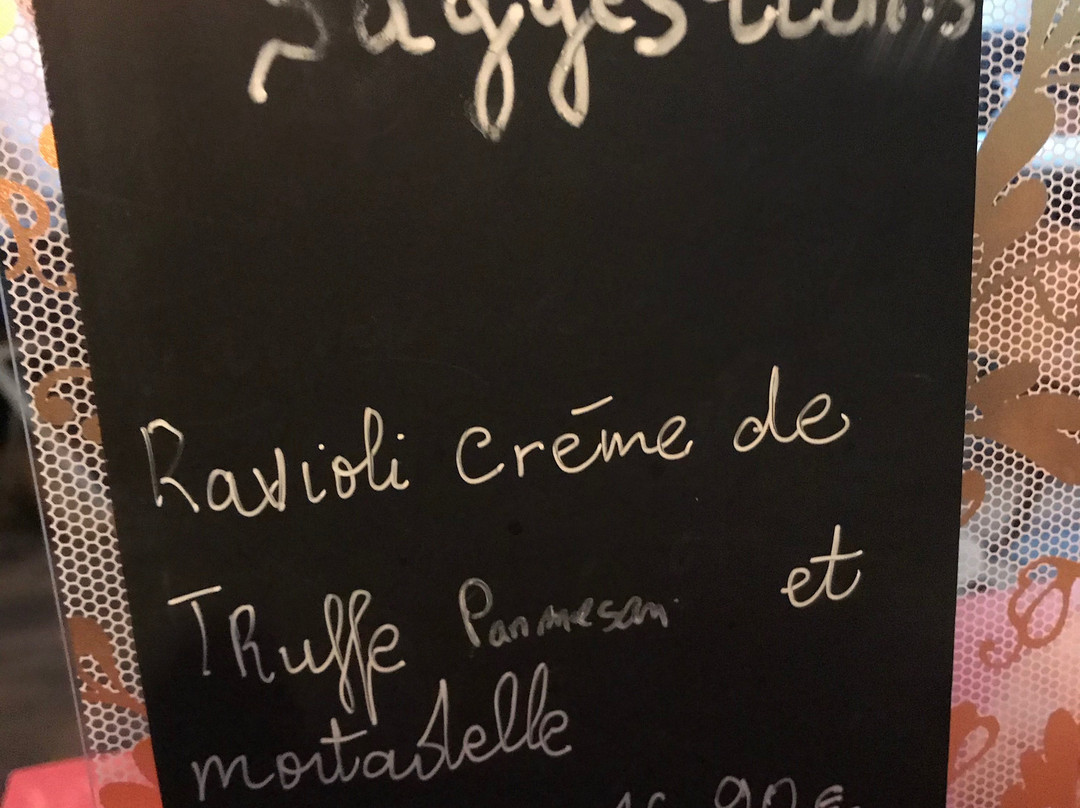 Suggestions
Ravioli crème de
Truffe Parmesan et
mortadelle
16,90 €